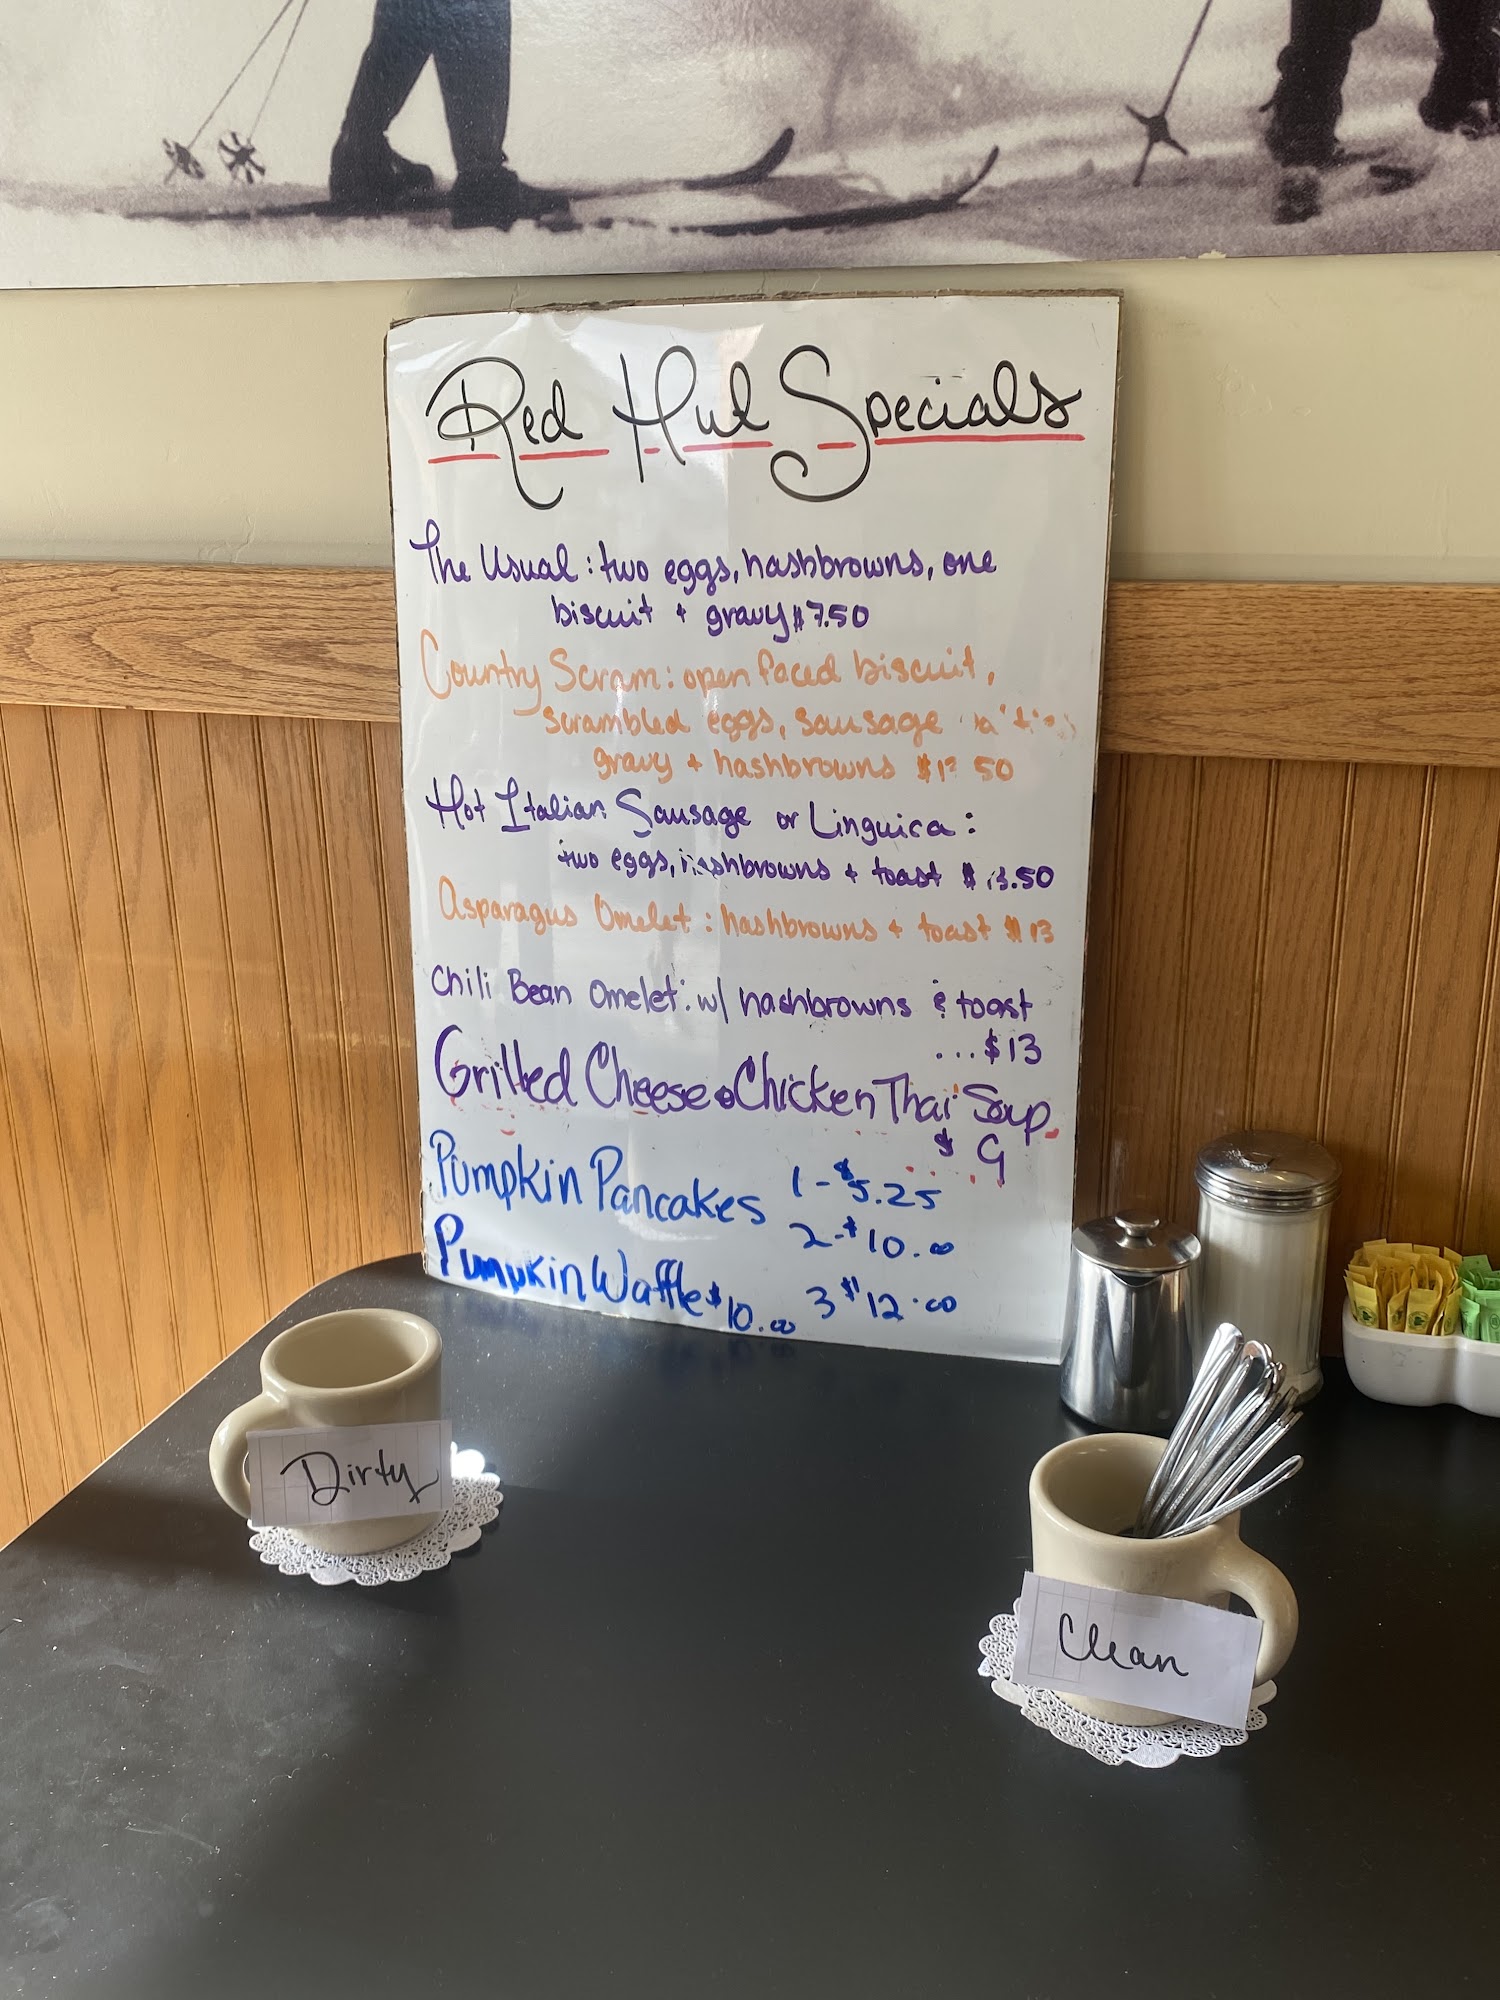 Red Hut Specials
The Usual: two eggs, hashbrowns, one
biscuit + gravy $7.50
Country Scram: open faced biscuit,
scrambled eggs, sausage
gravy + hashbrowns
Hot Italian Sausage or Linguica:
two eggs, hashbrowns + toast $13.50
Asparagus Omelet: hashbrowns + toast $13
Chili Bean Omelet: w/ hashbrowns & toast
...$13
Grilled Cheese & Chicken Thai Soup
$9
Pumpkin Pancakes 1-$5.25
2-$10.00
Pumpkin Waffle $10.00 3 $12.00
Dirty
Clean